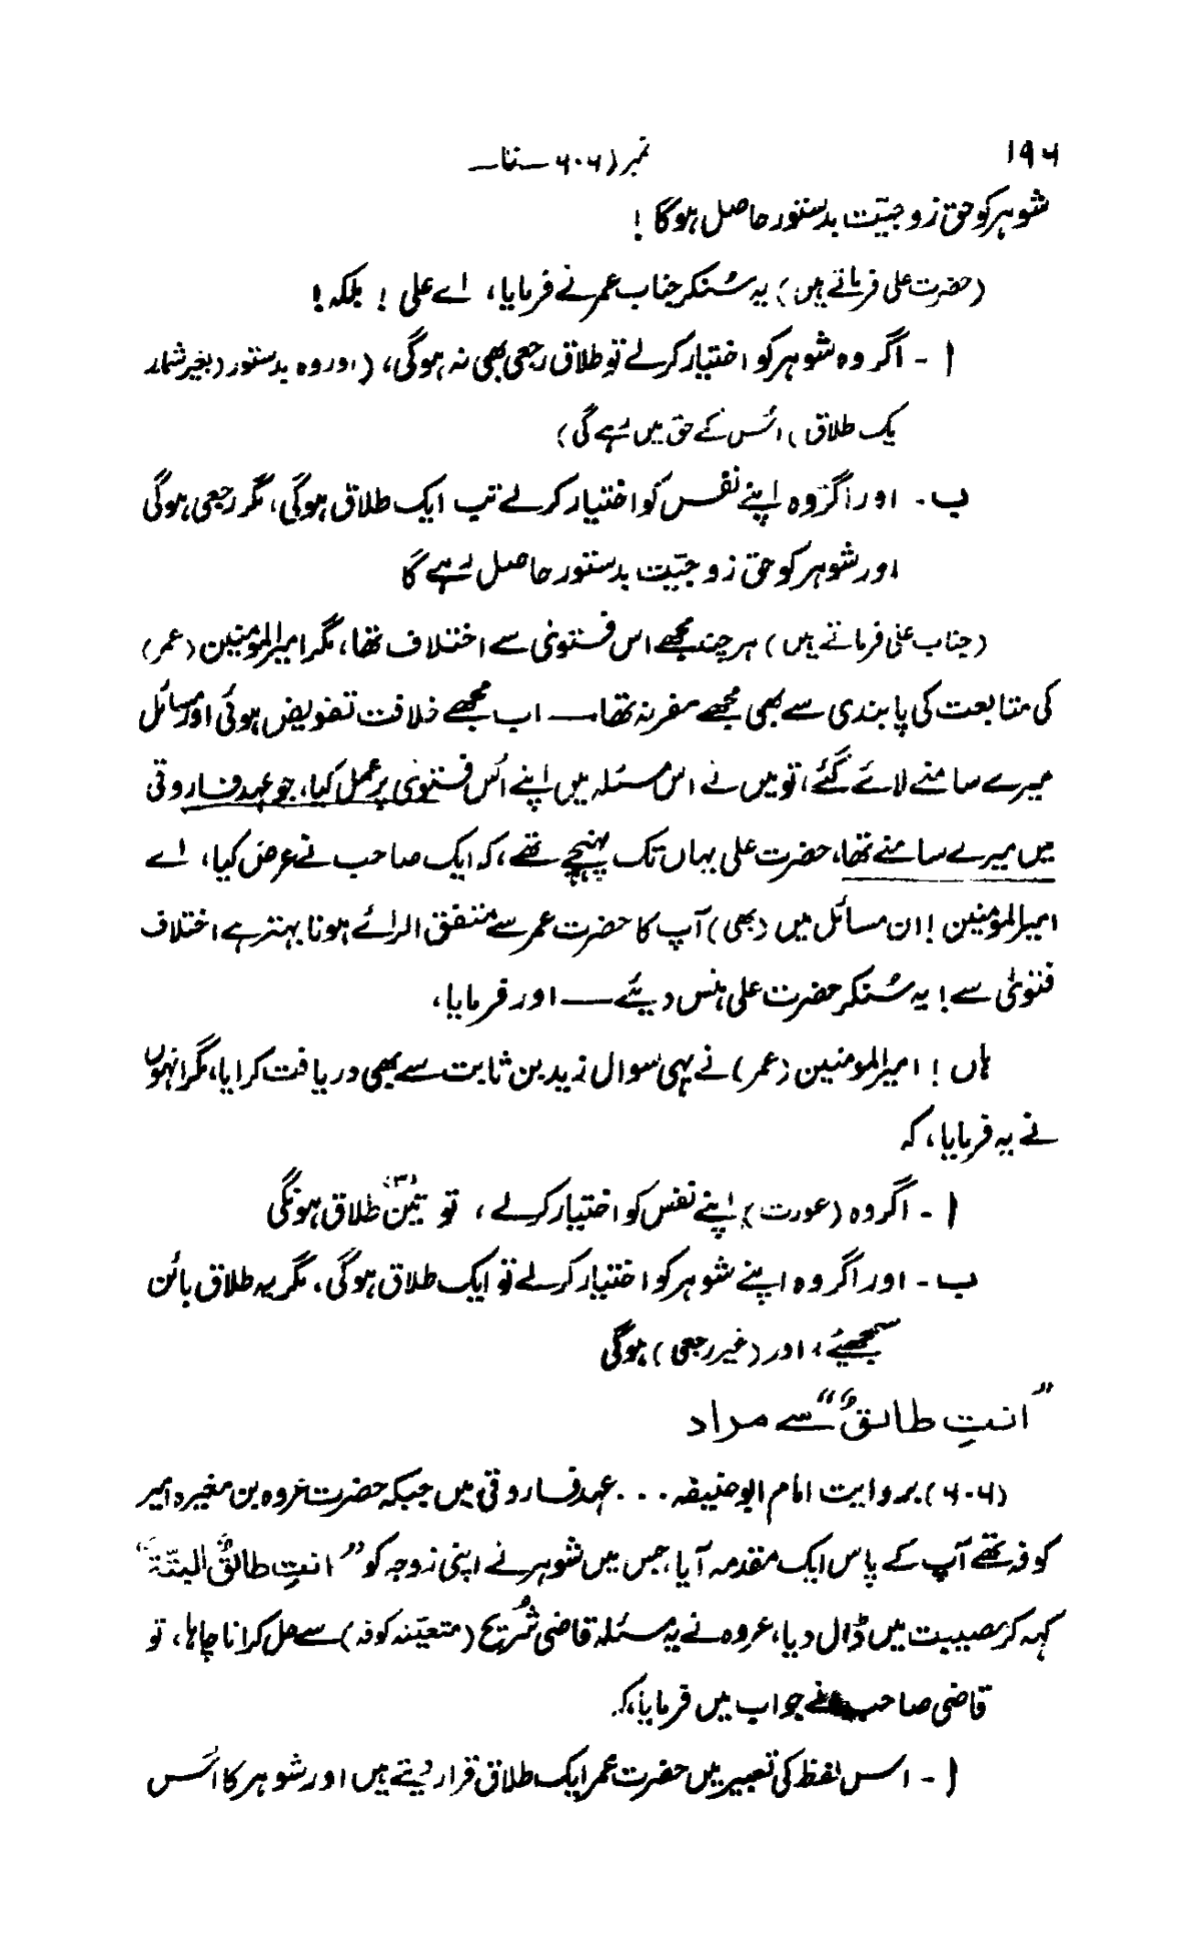 ۱۹۶
نمبر (۶۰۶ — تا —
شوہر کو حق زوجیّت بدستور حاصل ہوگا !
(حضرت علی فرماتے ہیں) یہ سُنکر جناب عمر نے فرمایا، اے علی ! بلکہ !
ا - اگر وہ شوہر کو اختیار کرلے تو طلاق رجعی بھی نہ ہوگی، (اور وہ بدستور (بغیر شمار
یک طلاق) اُس کے حق میں رہے گی)
ب - اور اگر وہ اپنے نفس کو اختیار کرلے تب ایک طلاق ہوگی، مگر رجعی ہوگی
اور شوہر کو حق زوجیّت بدستور حاصل رہے گا
(جناب علی فرماتے ہیں) ہر چند مجھے اس فتویٰ سے اختلاف تھا، مگر امیرالمؤمنین (عمر)
کی متابعت کی پابندی سے بھی مجھے مفر نہ تھا — اب مجھے خلافت تفویض ہوئی اور مسائل
میرے سامنے لائے گئے، تو میں نے اس مسئلہ میں اپنے اُس فتویٰ پر عمل کیا، جو عہد فاروقی
میں میرے سامنے تھا، حضرت علی یہاں تک پہنچے تھے، کہ ایک صاحب نے عرض کیا، اے
امیرالمؤمنین ! ان مسائل میں (بھی) آپ کا حضرت عمر سے متفق الرائے ہونا بہتر ہے اختلاف
فتویٰ سے ! یہ سُنکر حضرت علی ہنس دیئے — اور فرمایا،
ہاں ! امیرالمومنین (عمر) نے یہی سوال زید بن ثابت سے بھی دریافت کرایا، مگر انہوں
نے یہ فرمایا، کہ
ا - اگر وہ (عورت) اپنے نفس کو اختیار کرلے، تو تین (۳) طلاق ہونگی
ب - اور اگر وہ اپنے شوہر کو اختیار کرلے تو ایک طلاق ہوگی، مگر یہ طلاق بائن
سمجھیئے، اور (غیر رجعی) ہوگی
"انتِ طالقٌ" سے مراد
(۶۰۶) بروایت امام ابو حنیفہ ... عہد فاروقی میں جبکہ حضرت عروہ بن مغیرہ امیر
کوفہ تھے آپ کے پاس ایک مقدمہ آیا، جس میں شوہر نے اپنی زوجہ کو "انتِ طالقٌ البتّۃ"
کہہ کر مصیبت میں ڈال دیا، عروہ نے یہ مسئلہ قاضی شُریح (متعیّنہ کوفہ) سے حل کرانا چاہا، تو
قاضی صاحب نے جواب میں فرمایا، کہ
ا - اس لفظ کی تعبیر میں حضرت عمر ایک طلاق قرار دیتے ہیں اور شوہر کا اُس